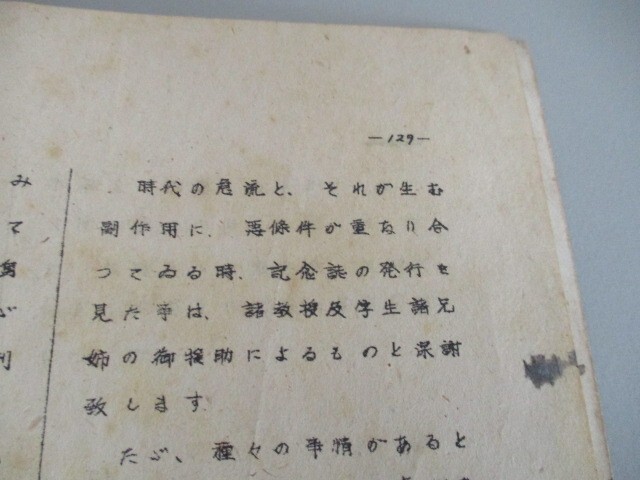 —129—
時代の急流と、それが生む
副作用に、悪條件が重なり合
つてゐる時、記念誌の発行を
見た事は、諸教授及学生諸兄
姉の御援助によるものと深謝
致します
たゞ、種々の事情があると